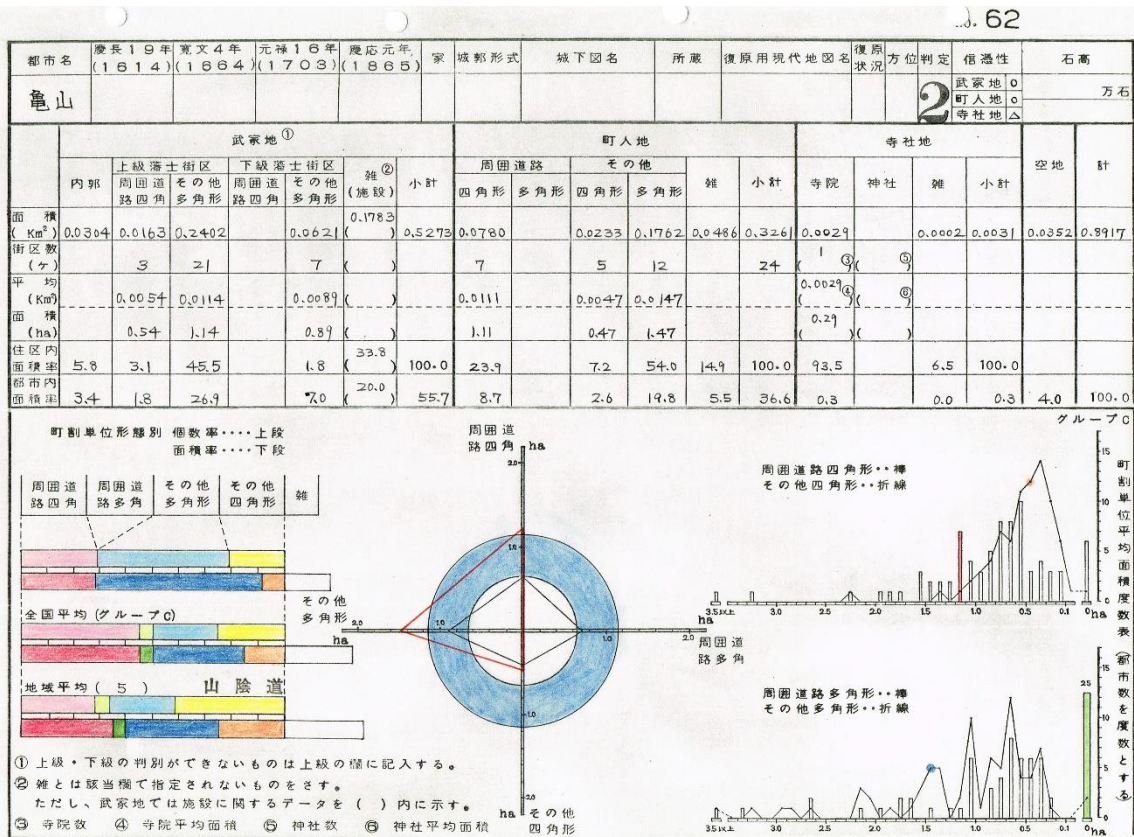 No. 62
都市名 慶長19年(1614) 寛文4年(1664) 元禄16年(1703) 慶応元年(1865) 家 城郭形式 城下図名 所蔵 復原用現代地図名 復原状況 方位 判定 信憑性 石高
亀山 2 武家地 ○ 町人地 ○ 寺社地 △ 万石
武家地① 町人地 寺社地 空地 計
内郭 上級藩士街区 下級藩士街区 雑②(施設) 小計 周囲道路 その他 雑 小計 寺院 神社 雑 小計
周囲道路四角 その他多角形 周囲道路四角 その他多角形 四角形 多角形 四角形 多角形
面積(Km²) 0.0304 0.0163 0.2402 0.0621 0.1783 ( ) 0.5273 0.0780 0.0233 0.1762 0.0486 0.3261 0.0029 0.0002 0.0031 0.0352 0.8917
街区数(ヶ) 3 21 7 ( ) 7 5 12 24 1 ( ③) ( ⑤)
平均(Km²) 0.0054 0.0114 0.0089 ( ) 0.0111 0.0047 0.0147 0.0029 ( ④) ( ⑥)
面積(ha) 0.54 1.14 0.89 ( ) 1.11 0.47 1.47 0.29 ( ) ( )
住区内面積率 5.8 3.1 45.5 1.8 33.8 ( ) 100.0 23.9 7.2 54.0 14.9 100.0 93.5 6.5 100.0
都市内面積率 3.4 1.8 26.9 7.0 20.0 ( ) 55.7 8.7 2.6 19.8 5.5 36.6 0.3 0.0 0.3 4.0 100.0
町割単位形態別 個数率‥‥上段
面積率‥‥下段
周囲道路四角 周囲道路多角 その他多角形 その他四角形 雑
全国平均(グループC)
地域平均( 5 ) 山陰道
周囲道路四角 ha
2.0
1.0
その他多角形
ha 2.0 1.0 1.0 2.0 ha
周囲道路多角
1.0
2.0
ha その他四角形
グループC
周囲道路四角形‥棒
その他四角形‥折線
15
10
5
0
3.5以上 3.0 2.5 2.0 1.5 1.0 0.5 0 ha
ha
周囲道路多角形‥棒
その他多角形‥折線
25
15
10
5
0
3.5以上 3.0 2.5 2.0 1.5 1.0 0.5 0 ha
町割単位平均面積度数表(都市数を度数とする)
① 上級・下級の判別ができないものは上級の欄に記入する。
② 雑とは該当欄で指定されないものをさす。
ただし、武家地では施設に関するデータを( )内に示す。
③ 寺院数 ④ 寺院平均面積 ⑤ 神社数 ⑥ 神社平均面積